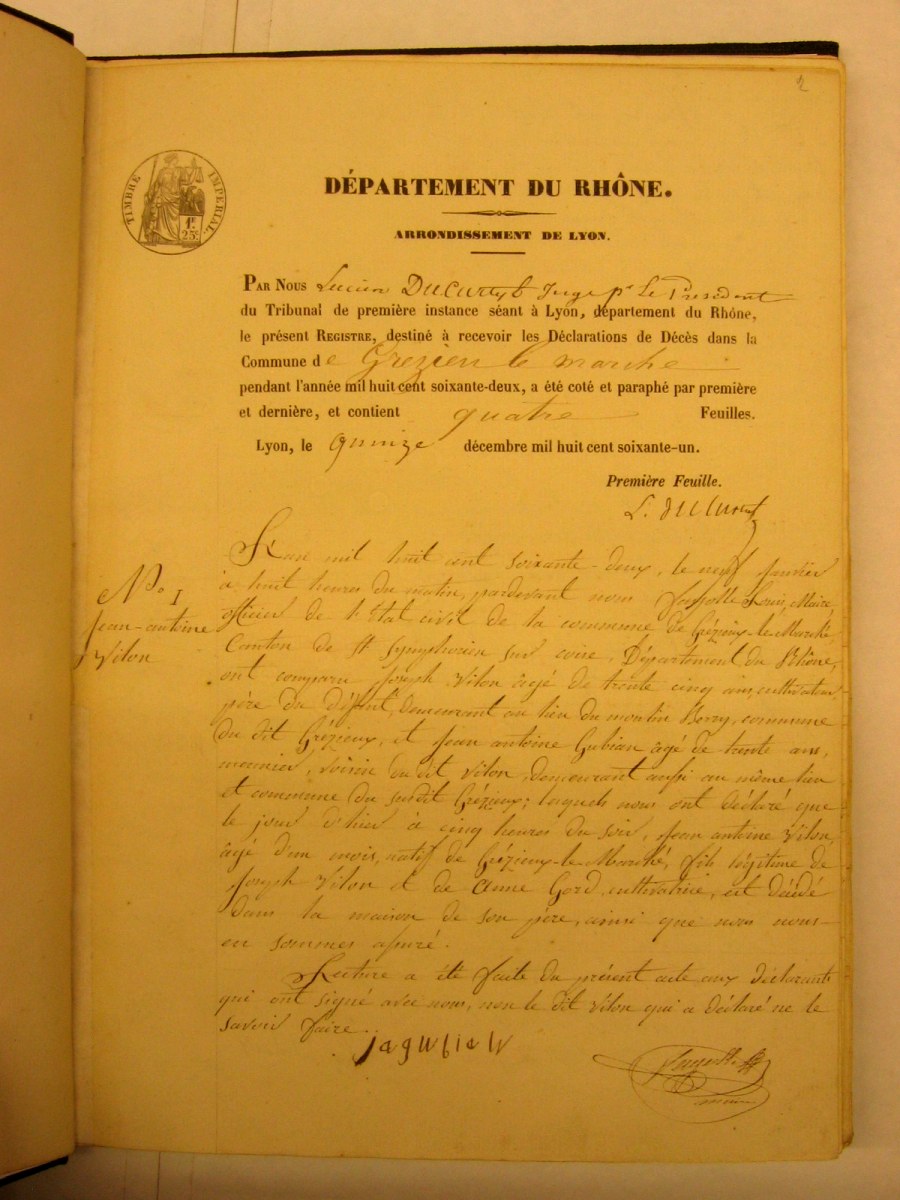 2
TIMBRE IMPÉRIAL.
1F.
25C.
DÉPARTEMENT DU RHÔNE.
ARRONDISSEMENT DE LYON.
PAR NOUS Lucien Ducurtyl Juge pr Le Président
du Tribunal de première instance séant à Lyon, département du Rhône,
le présent REGISTRE, destiné à recevoir les Déclarations de Décès dans la
Commune de Grezieu le marche
pendant l'année mil huit cent soixante-deux, a été coté et paraphé par première
et dernière, et contient quatre Feuilles.
Lyon, le quinze décembre mil huit cent soixante-un.
Première Feuille.
L. Ducurtyl
No 1
Jean-antoine
Vilon
L'an mil huit cent soixante-deux, le neuf Janvier
à huit heures du matin, pardevant nous Louis, Maire,
officier de l'Etat civil de la commune de Grézieux-le-Marché,
Canton de St Symphorien sur coire, Département du Rhône,
ont comparu Joseph Vilon âgé de trente cinq ans, cultivateur
père du défunt, demeurant au lieu du moulin commune
du dit Grézieux, et Jean antoine Gubian âgé de trente ans,
meunier, voisin du dit Vilon, demeurant aussi au même lieu
et commune du susdit Grézieux; lesquels nous ont déclaré que
le jour d'hier à cinq heures du soir, Jean antoine Vilon,
âgé d'un mois, natif de Grézieux-le-Marché, fils légitime de
Joseph Vilon et de Anne Gord, cultivatrice, est décédé
dans la maison de son père, ainsi que nous nous
en sommes assuré.
Lecture a été faite du présent acte aux déclarants
qui ont signé avec nous, non le dit Vilon qui a déclaré ne le
savoir faire.
jagubian